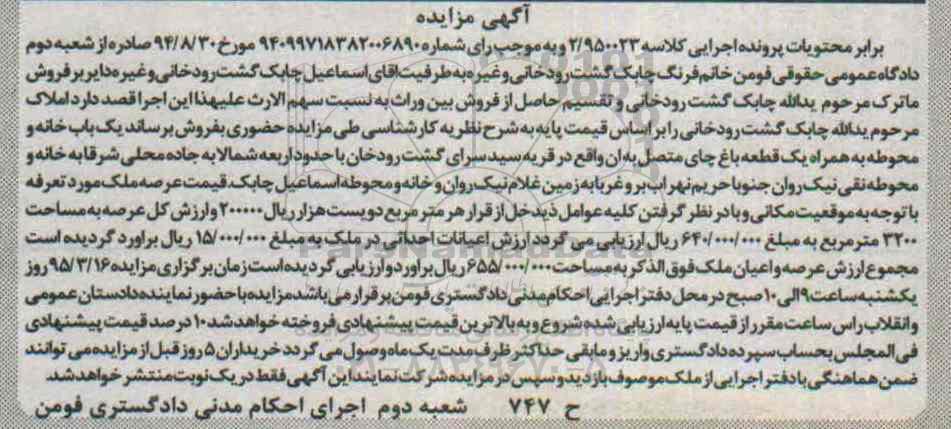 آگهی مزایده
برابر محتویات پرونده اجرایی کلاسه ۲/۹۵۰۰۲۳ و به موجب رای شماره ۹۴۰۹۹۷۱۸۳۸۲۰۰۶۸۹۰ مورخ ۹۴/۸/۳۰ صادره از شعبه دوم
دادگاه عمومی حقوقی فومن خانم فرنگ چابک گشت رودخانی و غیره به طرفیت اقای اسماعیل چابک گشت رودخانی و غیره دایر بر فروش
ماترک مرحوم یدالله چابک گشت رودخانی و تقسیم حاصل از فروش بین وراث به نسبت سهم الارث علیهذا این اجرا قصد دارد املاک
مرحوم یدالله چابک گشت رودخانی را بر اساس قیمت پایه به شرح نظریه کارشناسی طی مزایده حضوری بفروش برساند یک باب خانه و
محوطه به همراه یک قطعه باغ چای متصل به ان واقع در قریه سید سرای گشت رودخان با حدود اربعه شمالا به جاده محلی شرقا به خانه و
محوطه نقی نیک روان جنوبا حریم نهر اب بر و غربا به زمین غلام نیک روان و خانه و محوطه اسماعیل چابک. قیمت عرصه ملک مورد تعرفه
با توجه به موقعیت مکانی و با در نظر گرفتن کلیه عوامل ذیدخل از قرار هر متر مربع دویست هزار ریال ۲۰۰۰۰۰ وارزش کل عرصه به مساحت
۳۲۰۰ متر مربع به مبلغ ۶۴۰/۰۰۰/۰۰۰ ریال ارزیابی می گردد ارزش اعیانات احداثی در ملک به مبلغ ۱۵/۰۰۰/۰۰۰ ریال براورد گردیده است
مجموع ارزش عرصه و اعیان ملک فوق الذکر به مساحت ۶۵۵/۰۰۰/۰۰۰ ریال براورد و ارزیابی گردیده است زمان برگزاری مزایده ۹۵/۳/۱۶ روز
یکشنبه ساعت ۹ الی ۱۰ صبح در محل دفتر اجرایی احکام مدنی دادگستری فومن برقرار می باشد مزایده با حضور نماینده دادستان عمومی
و انقلاب راس ساعت مقرر از قیمت پایه ارزیابی شده شروع و به بالاترین قیمت پیشنهادی فروخته خواهد شد ۱۰ درصد قیمت پیشنهادی
فی المجلس بحساب سپرده دادگستری واریز و مابقی حداکثر ظرف مدت یک ماه وصول می گردد خریداران ۵ روز قبل از مزایده می توانند
ضمن هماهنگی با دفتر اجرایی از ملک موصوف بازدید و سپس در مزایده شرکت نمایند این آگهی فقط در یک نوبت منتشر خواهد شد.
ح ۷۴۷ شعبه دوم اجرای احکام مدنی دادگستری فومن